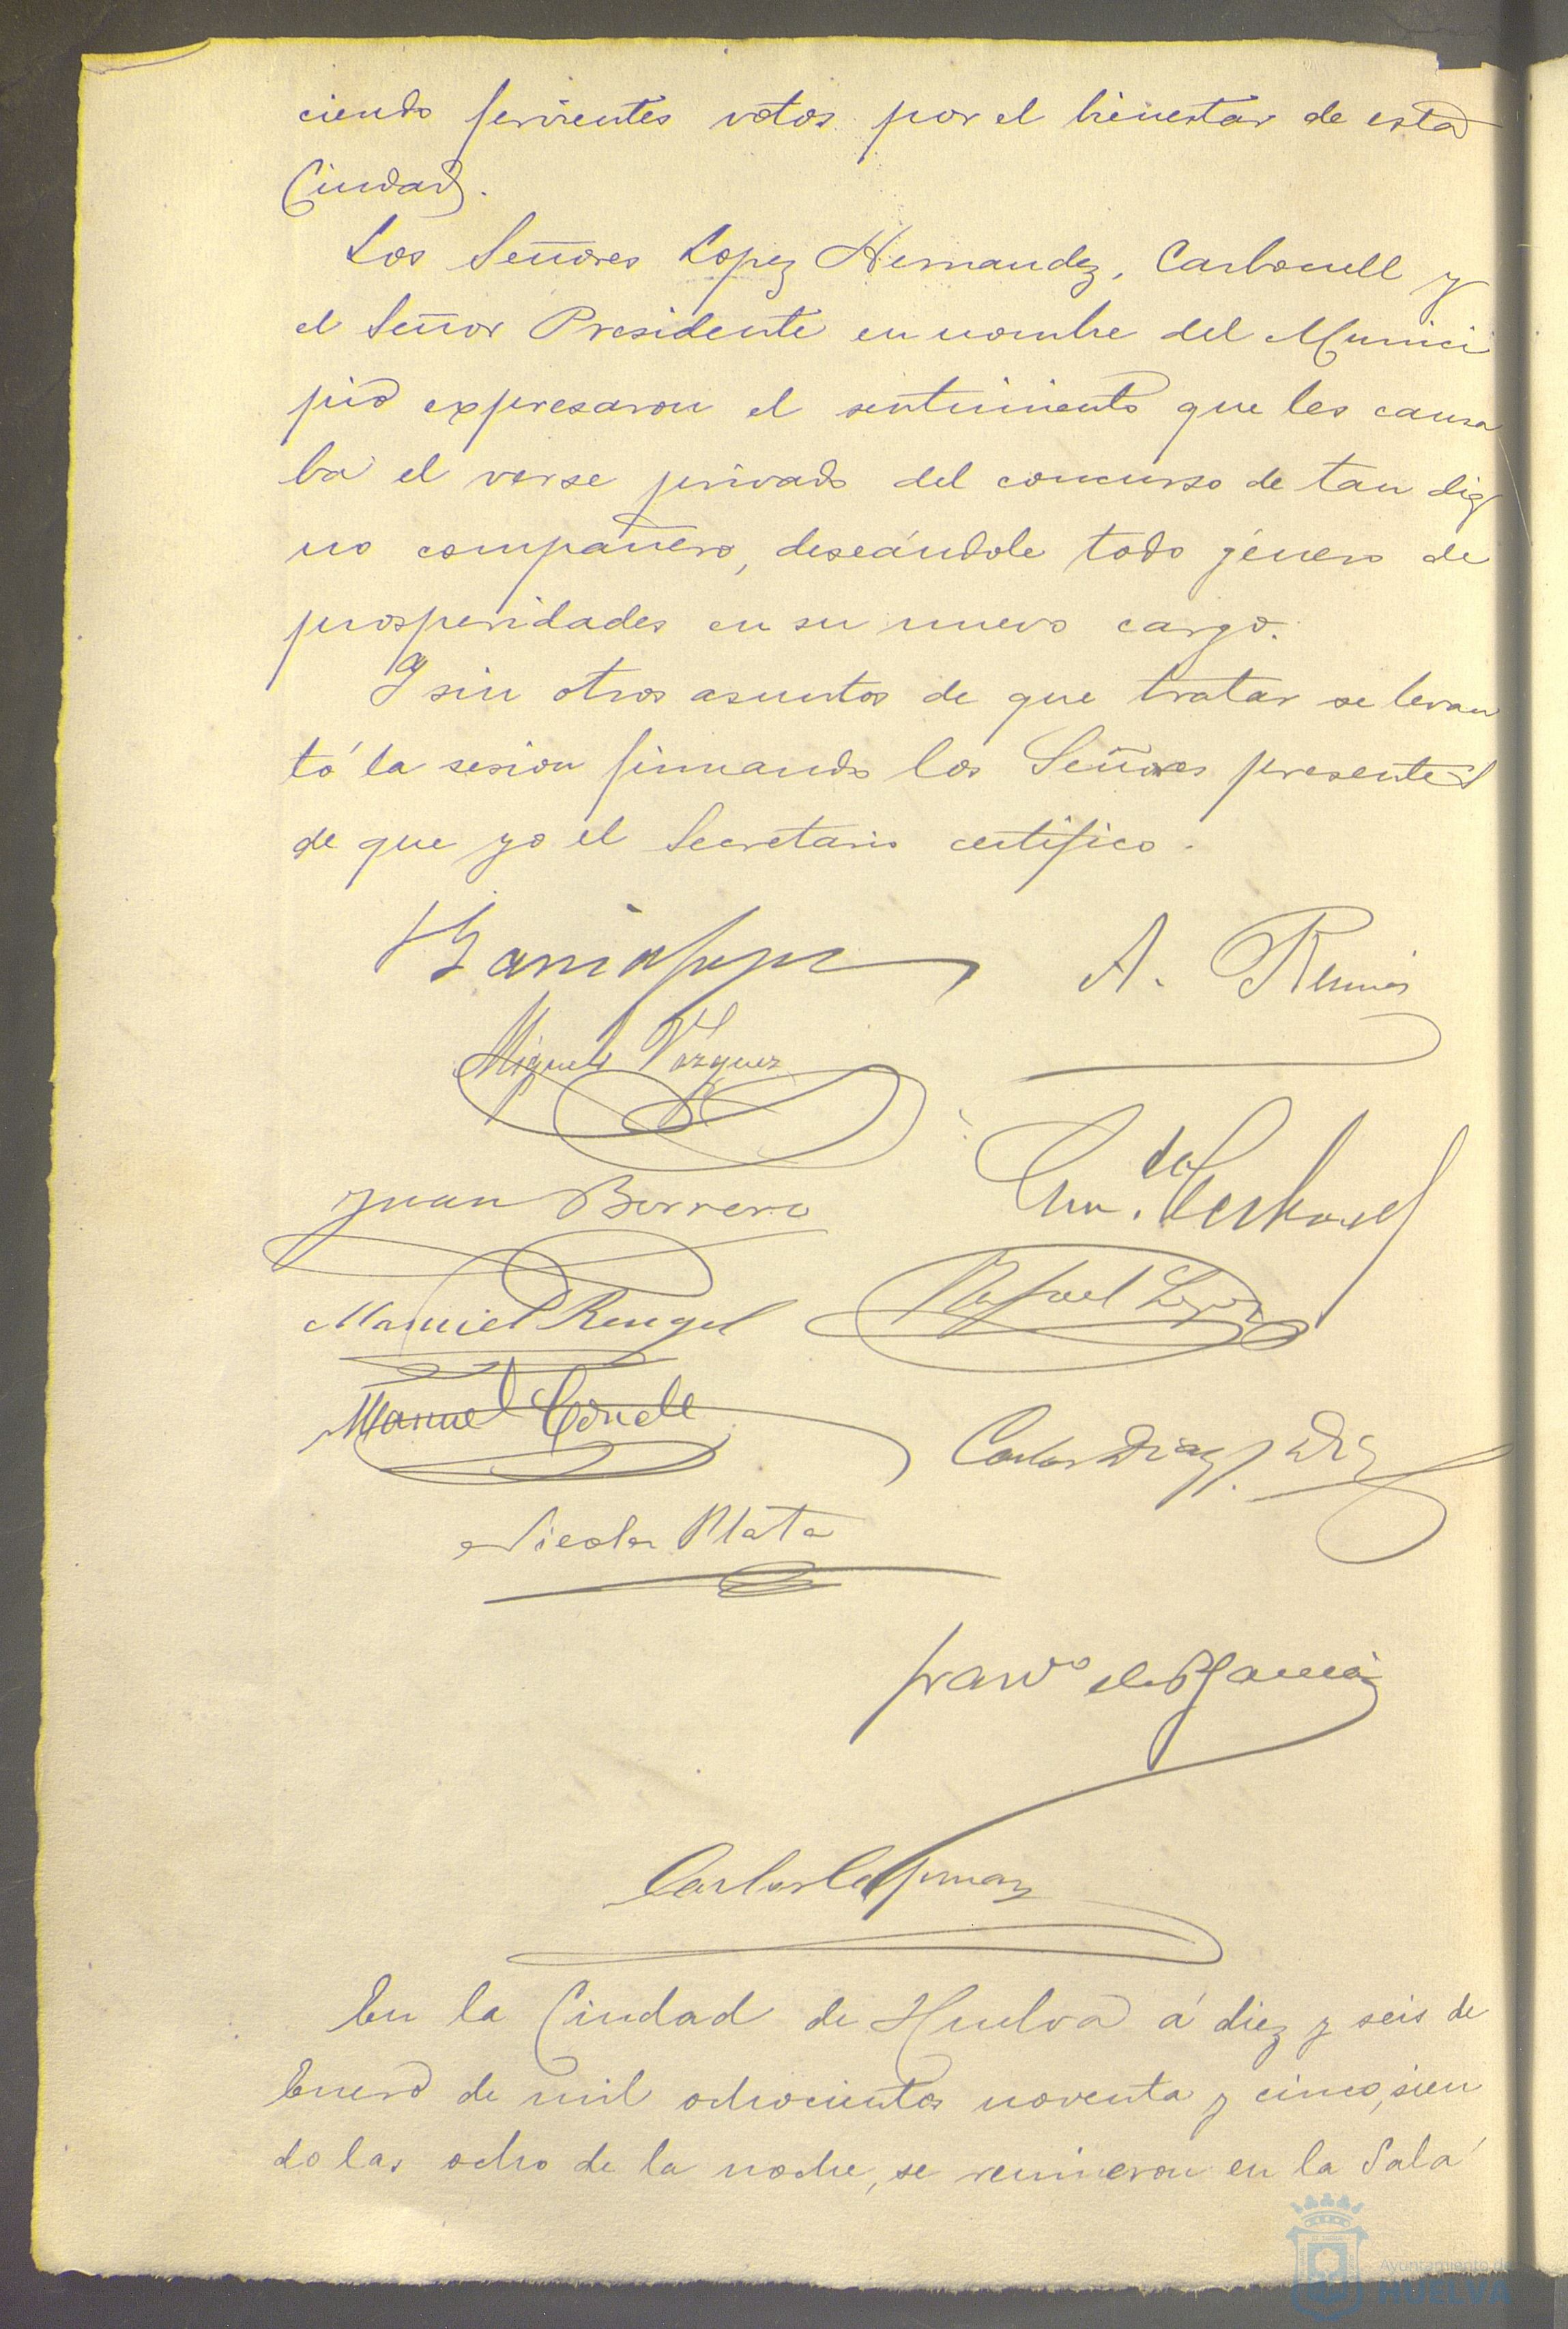 ciendo fervientes votos por el bienestar de esta
Ciudad.
Los Señores Lopez Hernandez, Carbonell y
el Señor Presidente en nombre del Munici
pio expresaron el sentimiento que les causa
ba el verse privado del concurso de tan dig
no compañero, deseándole todo género de
prosperidades en su nuevo cargo.
Y sin otros asuntos de que tratar se levan
tó la sesion firmando los Señores presentes
de que yo el Secretario certifico.
A.
Miguel Vazquez
Juan Borrero
Manuel Rengel
Rafael Lopez
Manuel Conde
Carlos Diaz
Nicolas Mata
Franco de P García
Carlos
En la Ciudad de Huelva á diez y seis de
Enero de mil ochocientos noventa y cinco, sien
do las ocho de la noche, se reunieron en la Sala
Ayuntamiento de
HUELVA